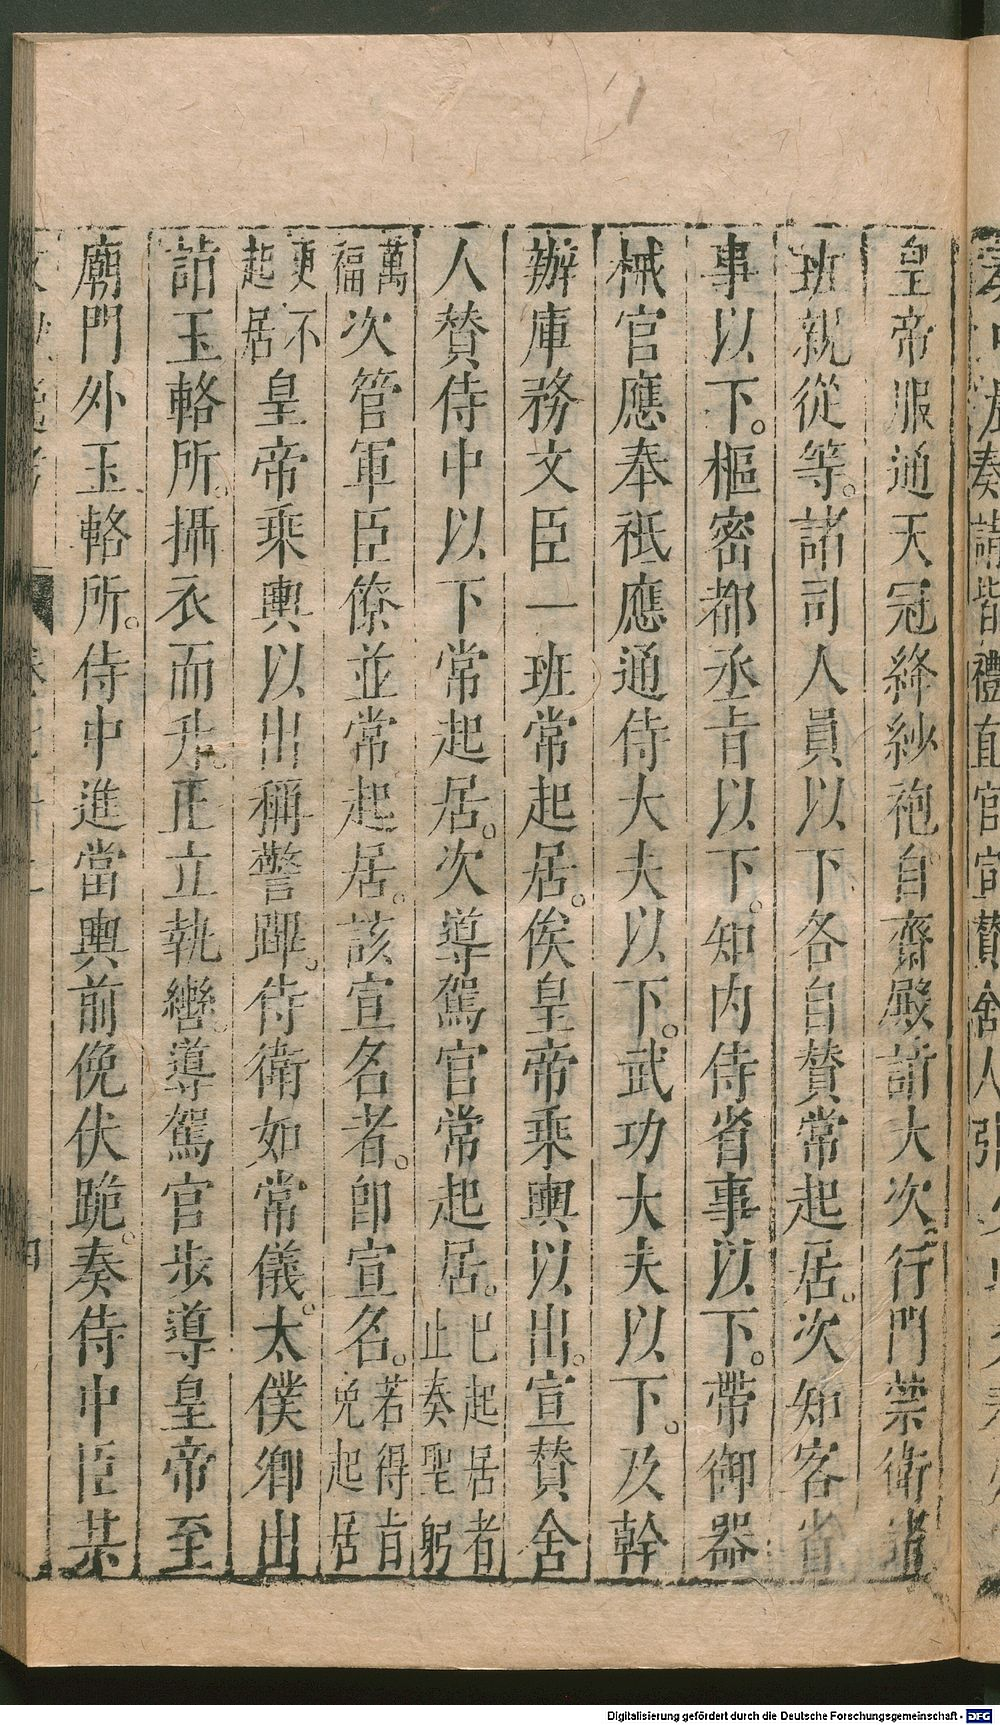 皇帝服通天冠絳紗袍自齋殿詣大次行門禁衛諸
班親從等。諸司人員以下各自贊常起居。次知客省
事以下。樞密都丞㫖以下。知内侍省事以下。帶御器
械官應奉祇應通侍大夫以下。武功大夫以下。及幹
辦庫務文臣一班常起居。俟皇帝乘輿以出。宣贊舍
人贊侍中以下常起居。次導駕官常起居。已起居者
止奏聖躬
萬
福
次管軍臣僚並常起居。該宣名者。卽宣名。若得㫖
免起居
更不
起居
皇帝乘輿以出稱警蹕。侍衛如常儀。太僕卿出
詣玉輅所。攝衣而升。正立執轡。導駕官步導皇帝至
廟門外玉輅所。侍中進當輿前俛伏跪。奏侍中臣某
奏請皆禮直官宣贊舍人
Digitalisierung gefördert durch die Deutsche Forschungsgemeinschaft - DFG